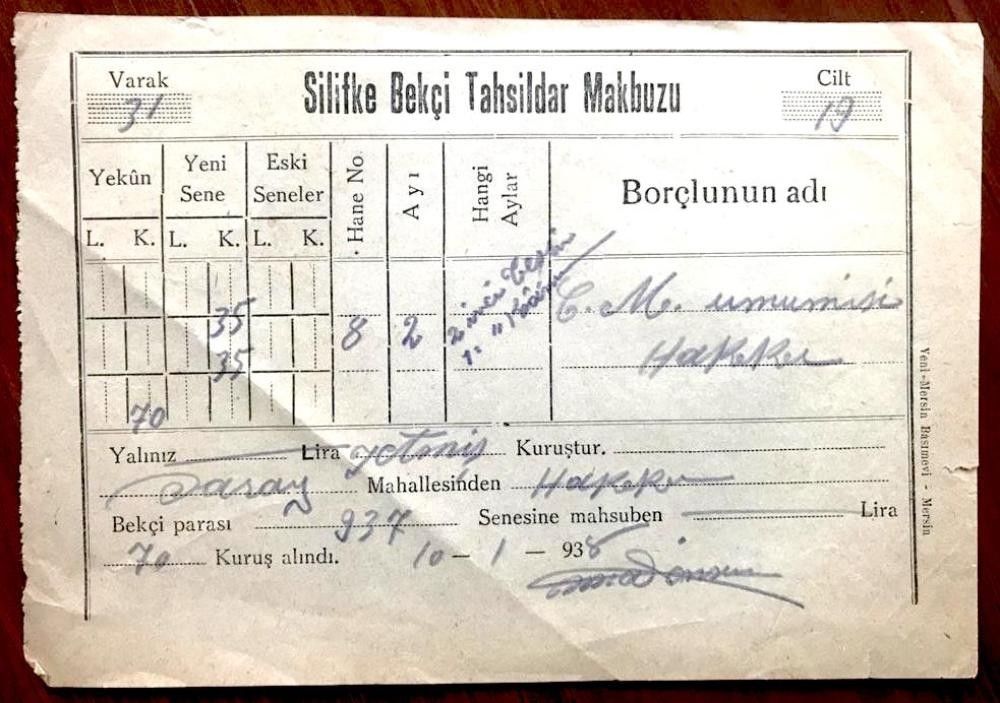 Varak
31
Silifke Bekçi Tahsildar Makbuzu
Cilt
19
Yekûn
Yeni Sene
Eski Seneler
Hane No.
Ayı
Hangi Aylar
Borçlunun adı
L. K. L. K. L. K.
35
35
70
8
2
2 inci Teşrin
1. " Kânun
C. M. umumisi
Hakkı
Yalınız Lira yetmiş Kuruştur.
Saray Mahallesinden Hakkı
Bekçi parası 937 Senesine mahsuben Lira
70 Kuruş alındı. 10 - 1 - 938
Yeni-Mersin Basımevi - Mersin